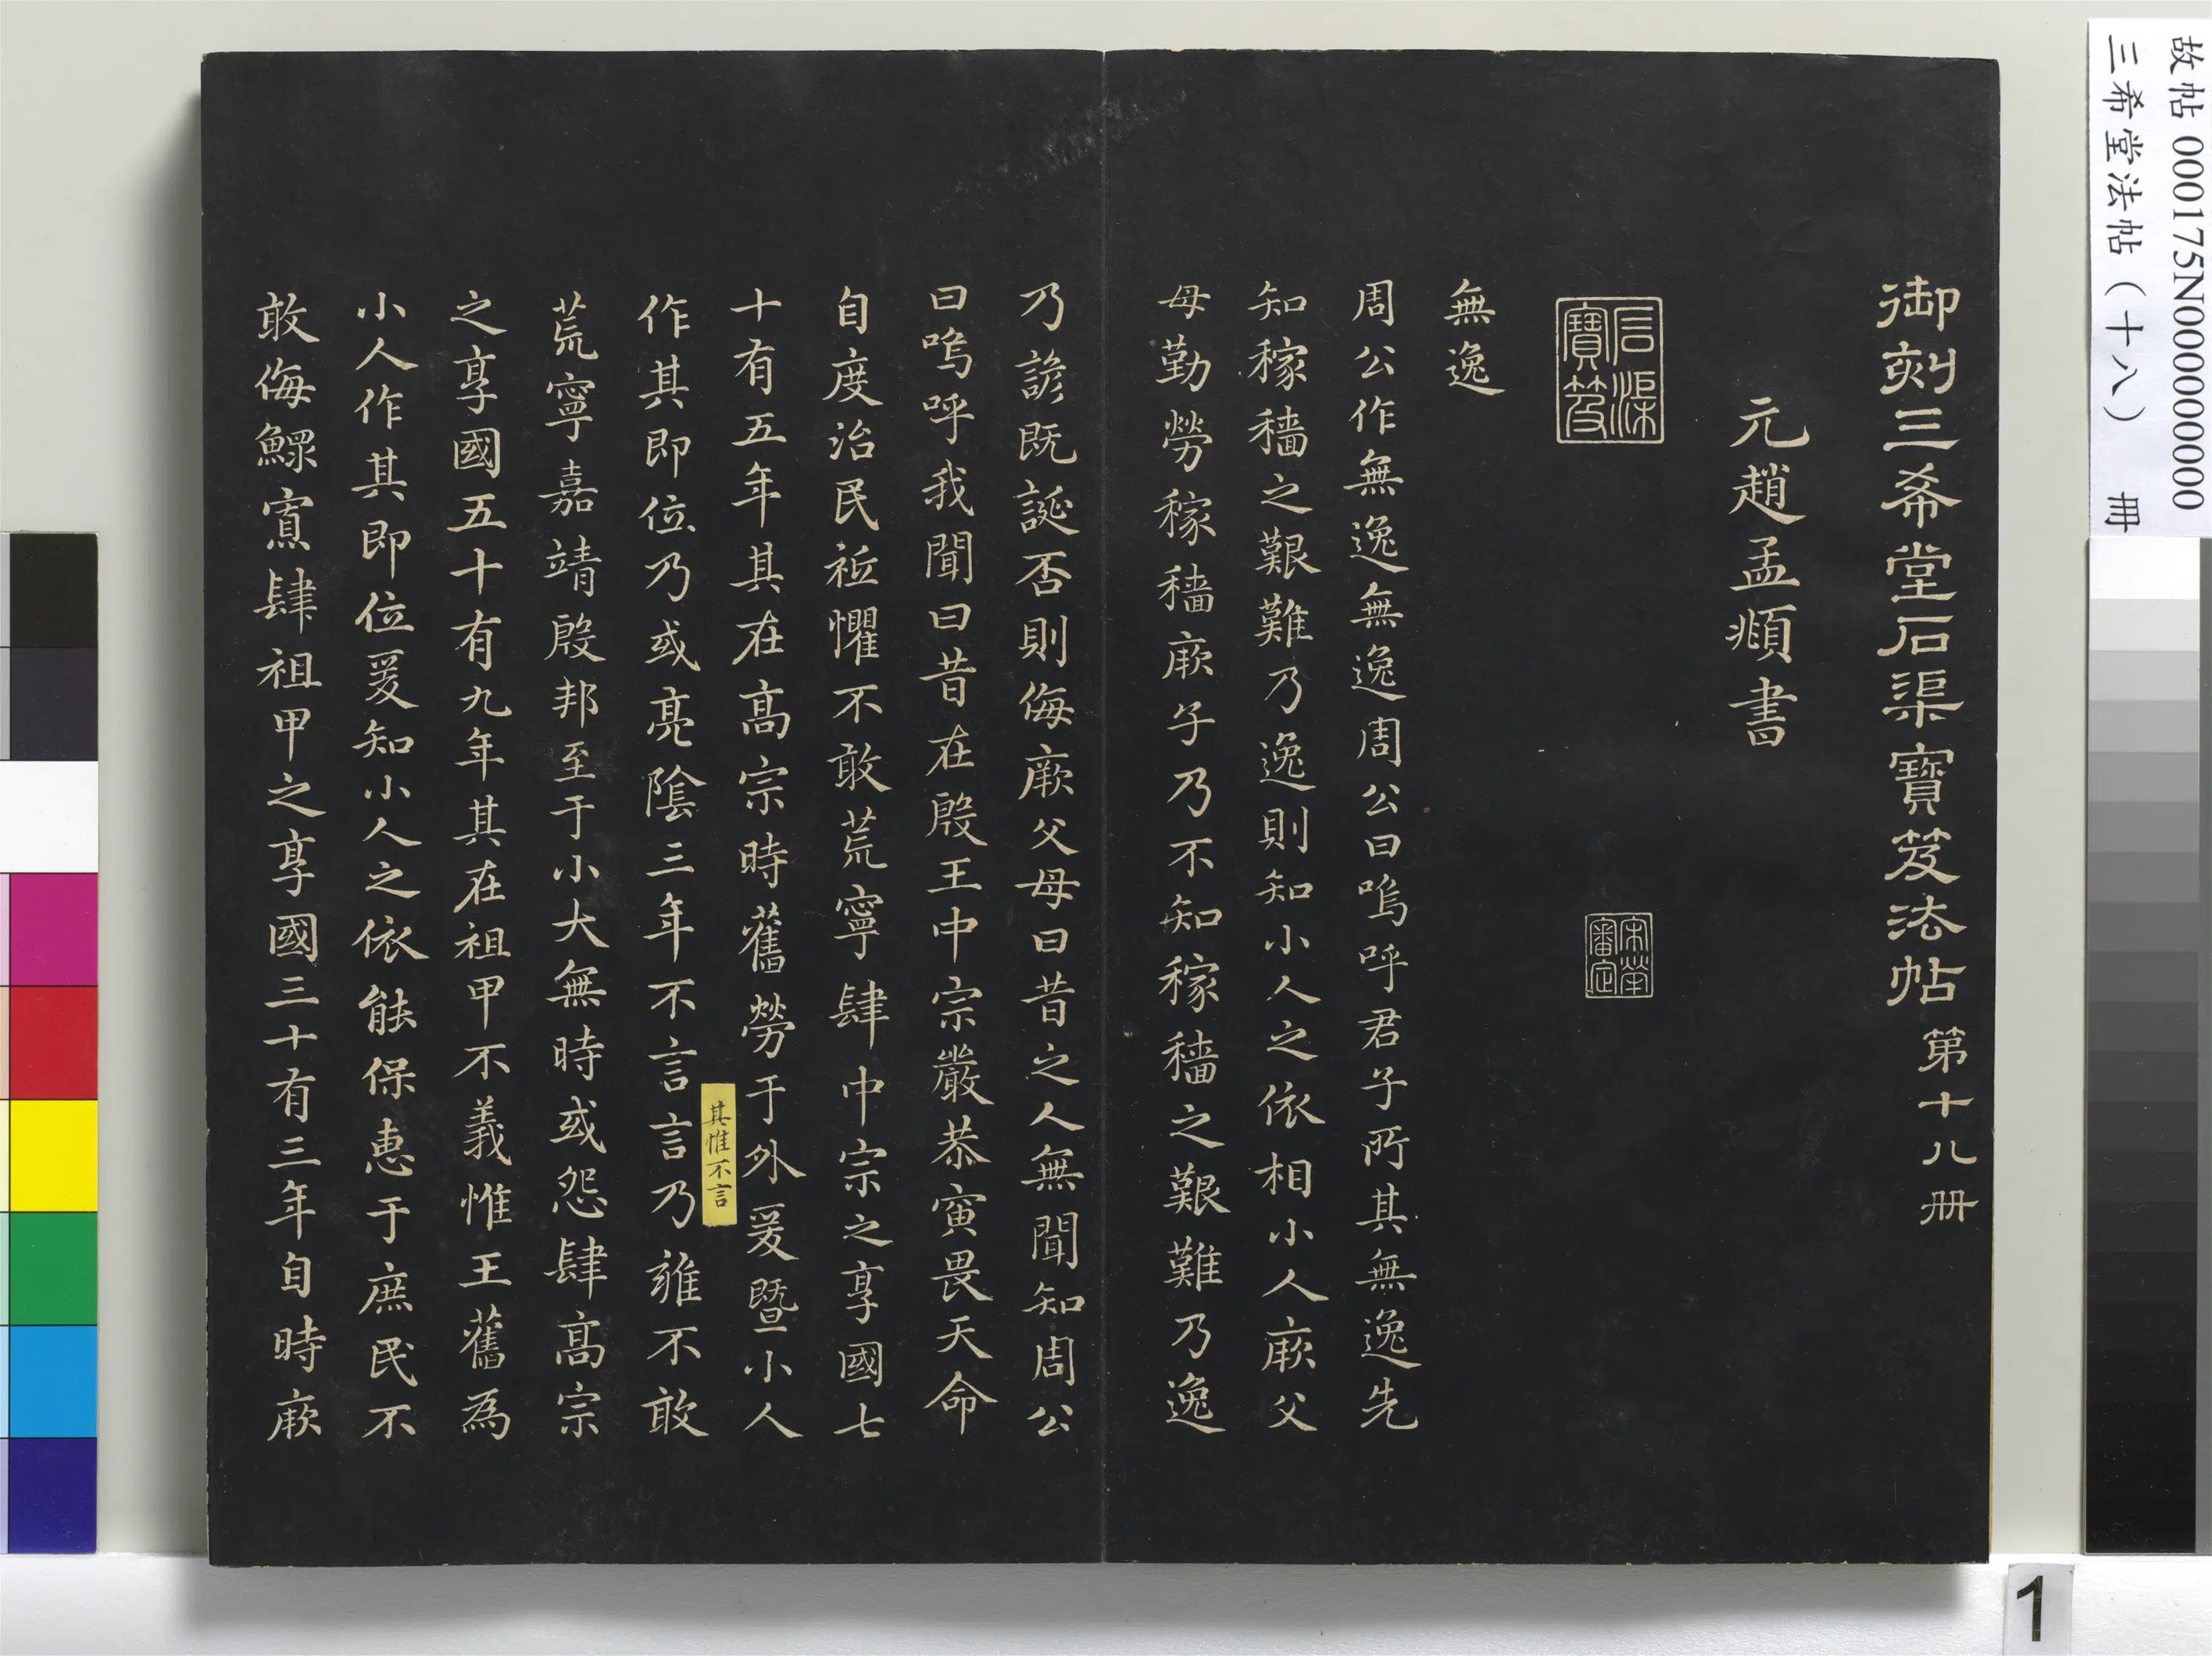 故帖000175N000000000
三希堂法帖（十八） 冊
御刻三希堂石渠寶笈法帖第十八冊
元趙孟頫書
石渠寶笈
宋犖審定
無逸
周公作無逸無逸周公曰嗚呼君子所其無逸先
知稼穡之艱難乃逸則知小人之依相小人厥父
母勤勞稼穡厥子乃不知稼穡之艱難乃逸
乃諺既誕否則侮厥父母曰昔之人無聞知周公
曰嗚呼我聞曰昔在殷王中宗嚴恭寅畏天命
自度治民祗懼不敢荒寧肆中宗之享國七
十有五年其在高宗時舊勞于外爰暨小人
其惟不言
作其即位乃或亮陰三年不言言乃雍不敢
荒寧嘉靖殷邦至于小大無時或怨肆高宗
之享國五十有九年其在祖甲不義惟王舊為
小人作其即位爰知小人之依能保惠于庶民不
敢侮鰥寡肆祖甲之享國三十有三年自時厥
1